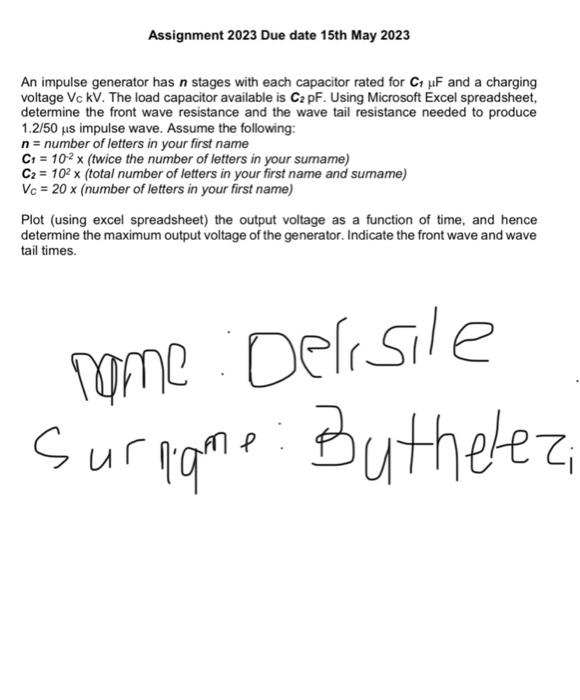 Assignment 2023 Due date 15th May 2023
An impulse generator has n stages with each capacitor rated for C₁ µF and a charging
voltage Vc kV. The load capacitor available is C₂ pF. Using Microsoft Excel spreadsheet,
determine the front wave resistance and the wave tail resistance needed to produce
1.2/50 µs impulse wave. Assume the following:
n = number of letters in your first name
C₁ = 10⁻² x (twice the number of letters in your surname)
C₂ = 10² x (total number of letters in your first name and surname)
Vc = 20 x (number of letters in your first name)
Plot (using excel spreadsheet) the output voltage as a function of time, and hence
determine the maximum output voltage of the generator. Indicate the front wave and wave
tail times.
name : Delisile
Surname : Buthelezi